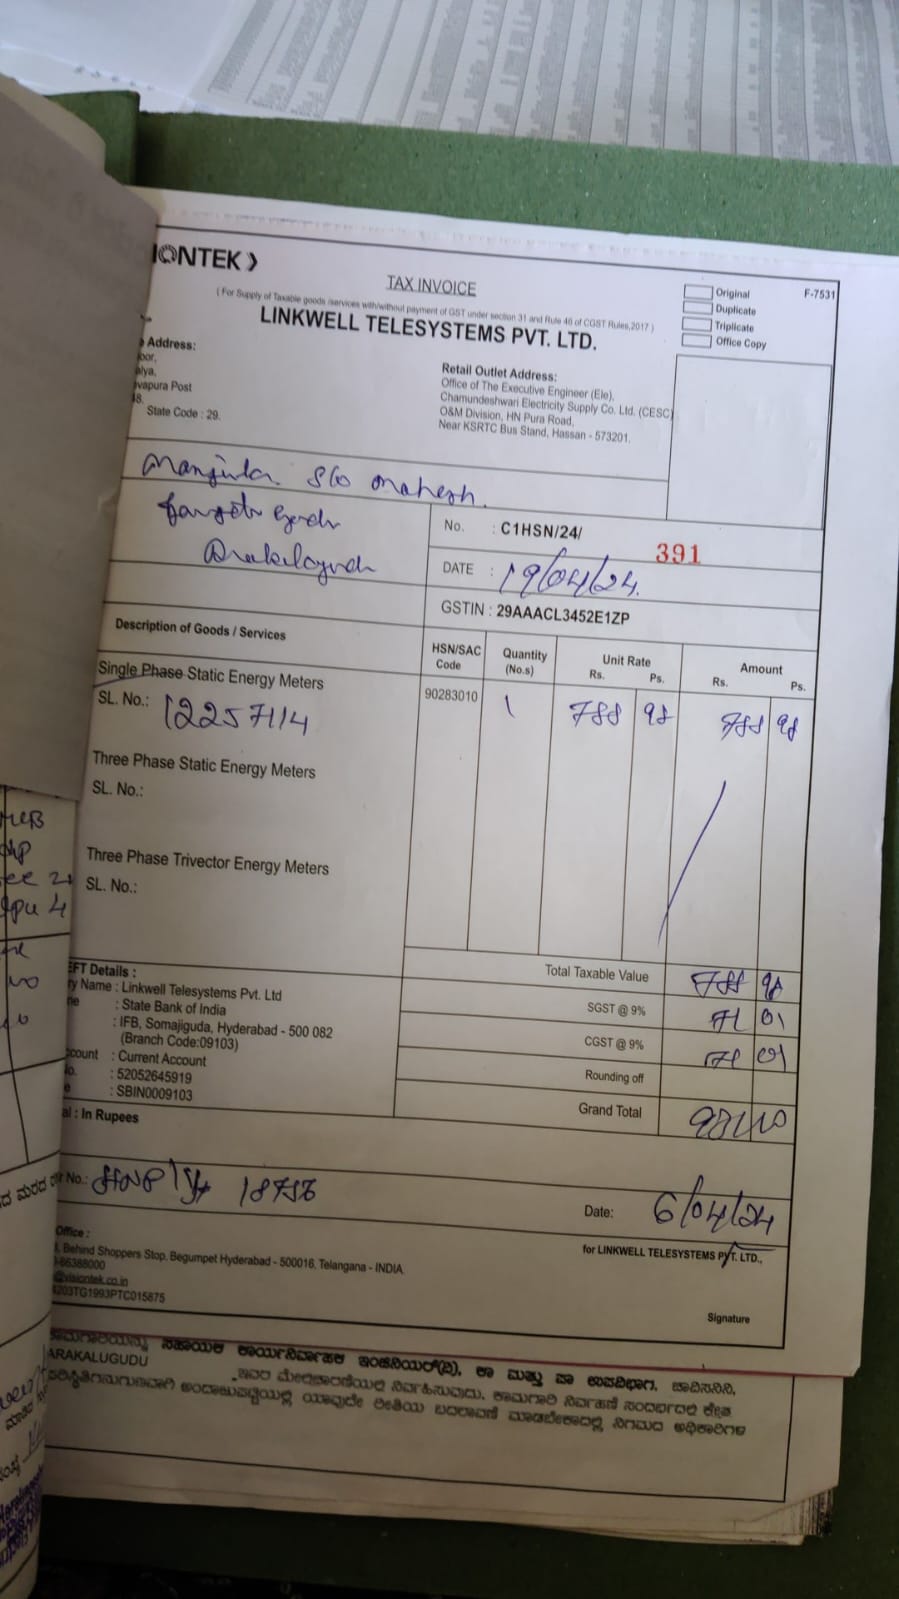 IONTEK
TAX INVOICE
Original
F-7531
Duplicate
Triplicate
Office Copy
( For Supply of Taxable goods /services with/without payment of GST under section 31 and Rule 46 of CGST Rules,2017 )
LINKWELL TELESYSTEMS PVT. LTD.
Address:
oor,
alya,
vapura Post
State Code : 29.
Retail Outlet Address:
Office of The Executive Engineer (Ele),
Chamundeshwari Electricity Supply Co. Ltd. (CESC)
O&M Division, HN Pura Road,
Near KSRTC Bus Stand, Hassan - 573201.
Manjula S/o Mahesh.
No. : C1HSN/24/ 391
DATE : 19/04/24.
GSTIN : 29AAACL3452E1ZP
Description of Goods / Services
HSN/SAC Code
Quantity (No.s)
Unit Rate
Rs. Ps.
Amount
Rs. Ps.
Single Phase Static Energy Meters
90283010 1 788 98 788 98
SL. No.: 12257114
Three Phase Static Energy Meters
SL. No.:
Three Phase Trivector Energy Meters
SL. No.:
Total Taxable Value 788 98
SGST @ 9% 71 01
CGST @ 9% 71 01
Rounding off
Grand Total
EFT Details :
ry Name : Linkwell Telesystems Pvt. Ltd
: State Bank of India
: IFB, Somajiguda, Hyderabad - 500 082
(Branch Code:09103)
count : Current Account
: 52052645919
: SBIN0009103
al : In Rupees
No.: 18756
Date: 6/04/24
for LINKWELL TELESYSTEMS PVT. LTD.,
Office :
, Behind Shoppers Stop, Begumpet Hyderabad - 500016, Telangana - INDIA.
-66388000
@visiontek.co.in
203TG1993PTC015875
Signature
ಸಹಾಯಕ ಕಾರ್ಯನಿರ್ವಾಹಕ ಇಂಜಿನಿಯರ್(ವಿ), ಕಾ ಮತ್ತು ಪಾ ಉಪವಿಭಾಗ, ಚಾವಿಸನಿನಿ,
ARAKALUGUDU